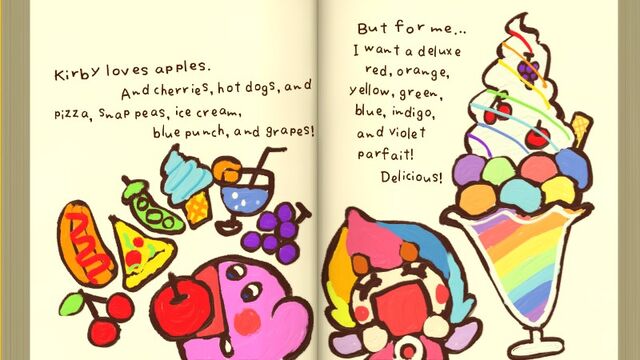 Kirby loves apples.
And cherries, hot dogs, and
pizza, snap peas, ice cream,
blue punch, and grapes!
But for me...
I want a deluxe
red, orange,
yellow, green,
blue, indigo,
and violet
parfait!
Delicious!